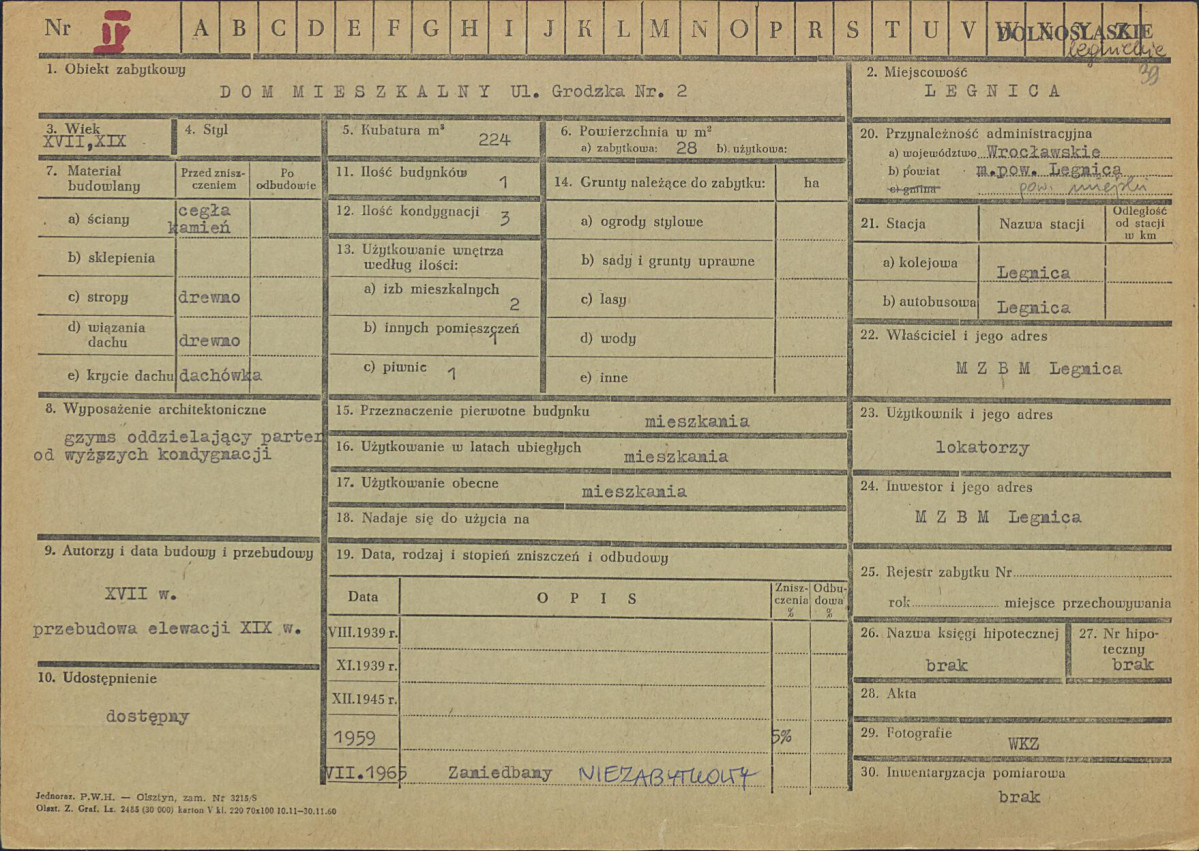 Nr IV A B C D E F G H I J K L M N O P R S T U V W X Y Z DOLNOŚLĄSKIE
legnickie
39
1. Obiekt zabytkowy
DOM MIESZKALNY Ul. Grodzka Nr. 2
2. Miejscowość
LEGNICA
3. Wiek
XVII, XIX
4. Styl
5. Kubatura m³ 224
6. Powierzchnia w m²
a) zabytkowa: 28 b). użytkowa:
7. Materiał budowlany
Przed zniszczeniem
Po odbudowie
a) ściany cegła kamień
b) sklepienia
c) stropy drewno
d) wiązania dachu drewno
e) krycie dachu dachówka
8. Wyposażenie architektoniczne
gzyms oddzielający parter
od wyższych kondygnacji
9. Autorzy i data budowy i przebudowy
XVII w.
przebudowa elewacji XIX w.
10. Udostępnienie
dostępny
11. Ilość budynków 1
12. Ilość kondygnacji 3
13. Użytkowanie wnętrza
według ilości:
a) izb mieszkalnych 2
b) innych pomieszczeń 1
c) piwnic 1
14. Grunty należące do zabytku: ha
a) ogrody stylowe
b) sady i grunty uprawne
c) lasy
d) wody
e) inne
15. Przeznaczenie pierwotne budynku mieszkania
16. Użytkowanie w latach ubiegłych mieszkania
17. Użytkowanie obecne mieszkania
18. Nadaje się do użycia na
19. Data, rodzaj i stopień zniszczeń i odbudowy
Data OPIS Zniszczenia % Odbudowa %
VIII.1939 r.
XI.1939 r.
XII.1945 r.
1959 5%
VII.1965 Zaniedbany NIEZABYTKOWY
20. Przynależność administracyjna
a) województwo Wrocławskie
b) powiat m.pow. Legnica
c) gmina pow. miejski
21. Stacja Nazwa stacji Odległość od stacji w km
a) kolejowa Legnica
b) autobusowa Legnica
22. Właściciel i jego adres
M Z B M Legnica
23. Użytkownik i jego adres
lokatorzy
24. Inwestor i jego adres
M Z B M Legnica
25. Rejestr zabytku Nr
rok miejsce przechowywania
26. Nazwa księgi hipotecznej
brak
27. Nr hipoteczny
brak
28. Akta
29. Fotografie
WKZ
30. Inwentaryzacja pomiarowa
brak
Jednoraz. P.W.H. — Olsztyn, zam. Nr 3215/S
Olszt. Z. Graf. Lz. 2455 (30 000) karton V kl. 220 70x100 10.11—30.11.60